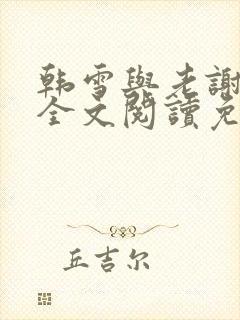 韩雪與老謝
全文閱讀免
丘吉尔